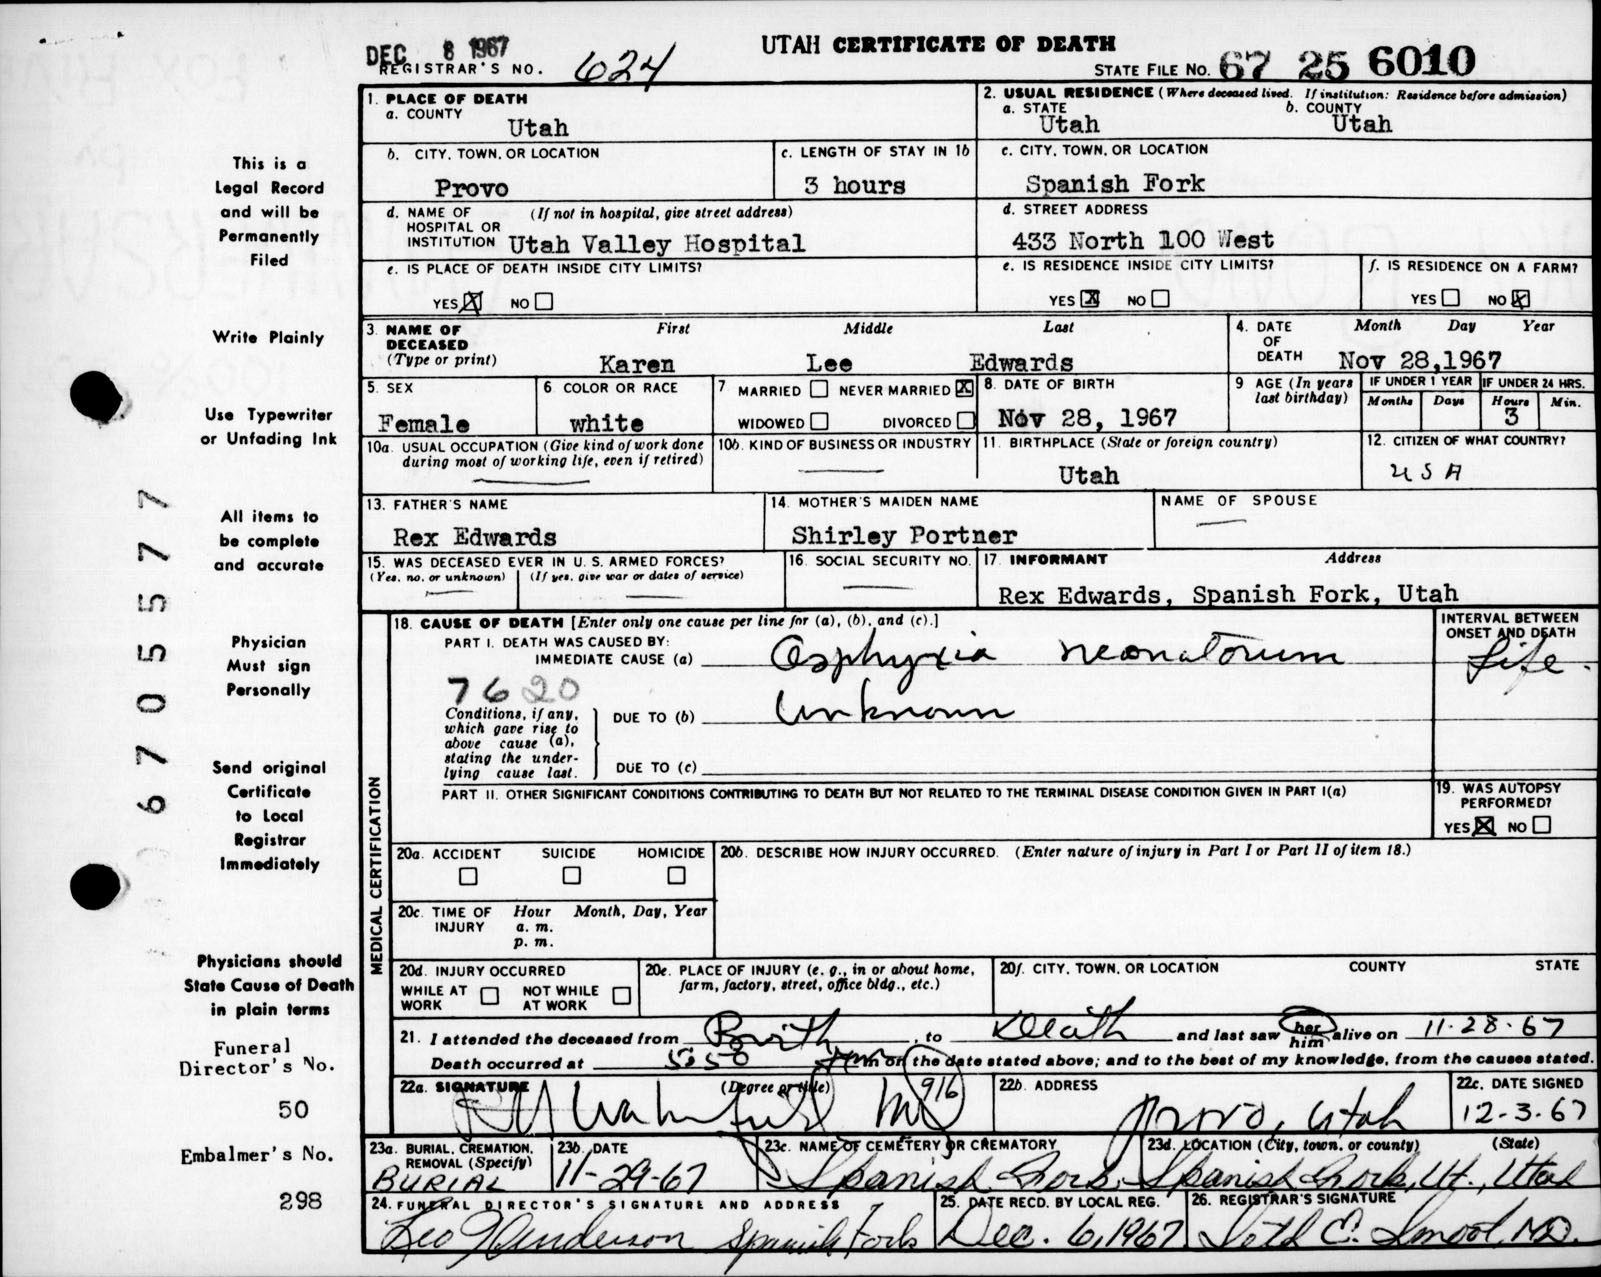 DEC 8 1967
REGISTRAR'S NO. 624
UTAH CERTIFICATE OF DEATH
STATE FILE NO. 67 25 6010
This is a
Legal Record
and will be
Permanently
Filed
Write Plainly
Use Typewriter
or Unfading Ink
All items to
be complete
and accurate
Physician
Must sign
Personally
Send original
Certificate
to Local
Registrar
Immediately
Physicians should
State Cause of Death
in plain terms
Funeral
Director's No.
50
Embalmer's No.
298
6705577
1. PLACE OF DEATH
a. COUNTY
Utah
2. USUAL RESIDENCE (Where deceased lived. If institution: Residence before admission)
a. STATE b. COUNTY
Utah Utah
b. CITY, TOWN, OR LOCATION
Provo
c. LENGTH OF STAY IN 1b
3 hours
c. CITY, TOWN, OR LOCATION
Spanish Fork
d. NAME OF (If not in hospital, give street address)
HOSPITAL OR
INSTITUTION Utah Valley Hospital
d. STREET ADDRESS
433 North 100 West
e. IS PLACE OF DEATH INSIDE CITY LIMITS?
YES X NO
e. IS RESIDENCE INSIDE CITY LIMITS?
YES X NO
f. IS RESIDENCE ON A FARM?
YES NO X
3. NAME OF First Middle Last
DECEASED
(Type or print) Karen Lee Edwards
4. DATE Month Day Year
OF
DEATH Nov 28,1967
5. SEX
Female
6. COLOR OR RACE
white
7 MARRIED NEVER MARRIED X
WIDOWED DIVORCED
8. DATE OF BIRTH
Nov 28, 1967
9 AGE (In years
last birthday)
IF UNDER 1 YEAR IF UNDER 24 HRS.
Months Days Hours Min.
3
10a. USUAL OCCUPATION (Give kind of work done
during most of working life, even if retired)
10b. KIND OF BUSINESS OR INDUSTRY
11. BIRTHPLACE (State or foreign country)
Utah
12. CITIZEN OF WHAT COUNTRY?
USA
13. FATHER'S NAME
Rex Edwards
14. MOTHER'S MAIDEN NAME
Shirley Portner
NAME OF SPOUSE
15. WAS DECEASED EVER IN U. S. ARMED FORCES?
(Yes, no, or unknown) (If yes, give war or dates of service)
16. SOCIAL SECURITY NO.
17. INFORMANT Address
Rex Edwards, Spanish Fork, Utah
MEDICAL CERTIFICATION
18. CAUSE OF DEATH [Enter only one cause per line for (a), (b), and (c).]
INTERVAL BETWEEN
ONSET AND DEATH
PART I. DEATH WAS CAUSED BY:
IMMEDIATE CAUSE (a) Asphyxia neonatorum Life.
7620
Conditions, if any,
which gave rise to
above cause (a),
stating the under-
lying cause last.
DUE TO (b) Unknown
DUE TO (c)
PART II. OTHER SIGNIFICANT CONDITIONS CONTRIBUTING TO DEATH BUT NOT RELATED TO THE TERMINAL DISEASE CONDITION GIVEN IN PART I(a)
19. WAS AUTOPSY
PERFORMED?
YES X NO
20a. ACCIDENT SUICIDE HOMICIDE
20b. DESCRIBE HOW INJURY OCCURRED. (Enter nature of injury in Part I or Part II of item 18.)
20c. TIME OF Hour Month, Day, Year
INJURY a. m.
p. m.
20d. INJURY OCCURRED
WHILE AT NOT WHILE
WORK AT WORK
20e. PLACE OF INJURY (e. g., in or about home,
farm, factory, street, office bldg., etc.)
20f. CITY, TOWN, OR LOCATION COUNTY STATE
21. I attended the deceased from Birth, to Death and last saw her him alive on 11-28-67
Death occurred at 5:50 m on the date stated above; and to the best of my knowledge, from the causes stated.
22a. SIGNATURE (Degree or title)
916
22b. ADDRESS
Provo, Utah
22c. DATE SIGNED
12-3-67
23a. BURIAL, CREMATION,
REMOVAL (Specify)
BURIAL
23b. DATE
11-29-67
23c. NAME OF CEMETERY OR CREMATORY
Spanish Fork
23d. LOCATION (City, town, or county) (State)
Spanish Fork, Ut., Utah
24. FUNERAL DIRECTOR'S SIGNATURE AND ADDRESS
Anderson Spanish Fork
25. DATE RECD. BY LOCAL REG.
Dec. 6, 1967
26. REGISTRAR'S SIGNATURE
Seth E. Smoot, M.D.